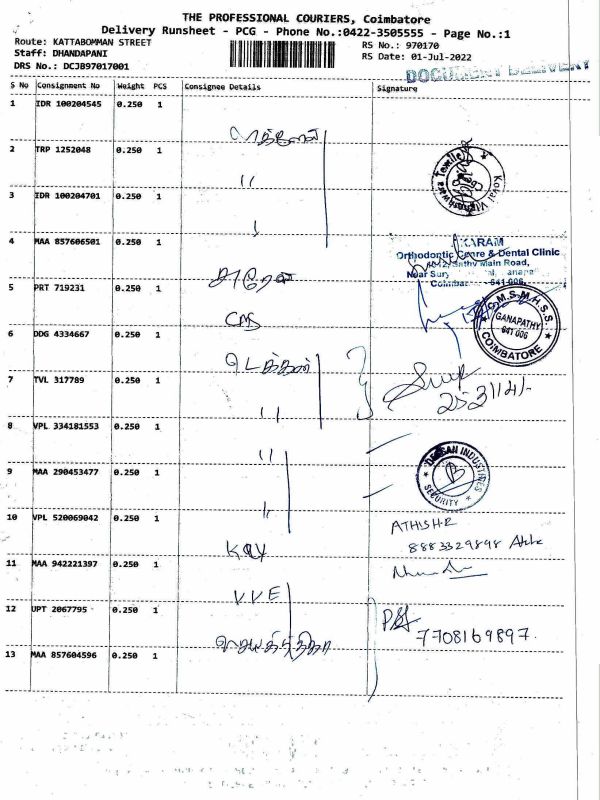 THE PROFESSIONAL COURIERS, Coimbatore
Delivery Runsheet - PCG - Phone No.:0422-3505555 - Page No.:1
Route: KATTABOMMAN STREET
RS No.: 970170
Staff: DHANDAPANI
RS Date: 01-Jul-2022
DRS No.: DCJB97017001
DOCUMENT DELIVERY
S No Consignment No Weight PCS Consignee Details Signature
1 IDR 100204545 0.250 1
2 TRP 1252048 0.250 1
"
3 IDR 100204701 0.250 1
4 MAA 857606501 0.250 1
Orthodontic Centre & Dental Clinic
Main Road,
Near
641 006.
5 PRT 719231 0.250 1
CMS
C.M.S.M.H.S.S.
GANAPATHY
641 006
COIMBATORE
6 DDG 4334667 0.250 1
7 TVL 317789 0.250 1
"
8 VPL 334181553 0.250 1
"
9 MAA 290453477 0.250 1
INDUSTRIES
SECURITY
"
10 VPL 520069042 0.250 1
KAY
8883329898
11 MAA 942221397 0.250 1
VVE
12 UPT 2067795 0.250 1
7708169897.
13 MAA 857604596 0.250 1